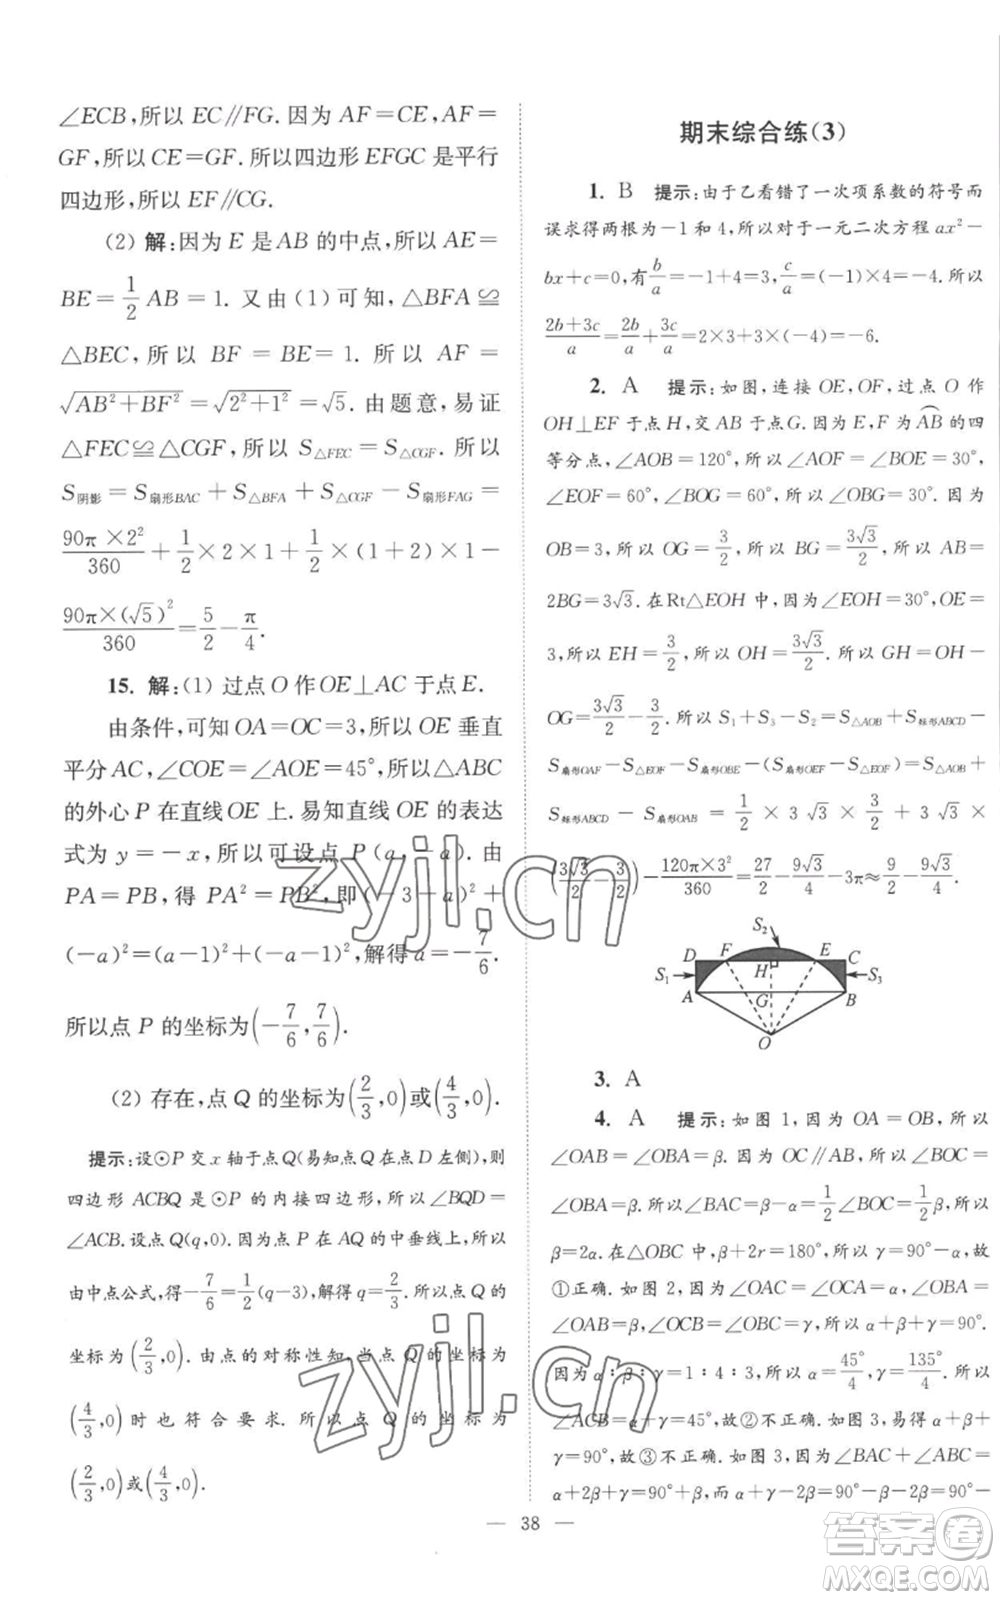 ∠ECB,所以 EC∥FG. 因为 AF=CE,AF=
GF,所以 CE=GF. 所以四边形 EFGC 是平行
四边形,所以 EF∥CG.
(2) 解:因为 E 是 AB 的中点,所以 AE=
BE=1/2 AB=1. 又由(1)可知,△BFA≌
△BEC,所以 BF=BE=1. 所以 AF=
√(AB²+BF²)=√(2²+1²)=√5. 由题意,易证
△FEC≌△CGF,所以 S△FEC=S△CGF. 所以
S阴影=S扇形BAC+S△BFA+S△CGF-S扇形FAG=
90π×2²/360+1/2×2×1+1/2×(1+2)×1-
90π×(√5)²/360=5/2-π/4.
15. 解:(1) 过点 O 作 OE⊥AC 于点 E.
由条件,可知 OA=OC=3,所以 OE 垂直
平分 AC,∠COE=∠AOE=45°,所以△ABC
的外心 P 在直线 OE 上. 易知直线 OE 的表达
式为 y=-x,所以可设点 P(a,-a). 由
PA=PB,得 PA²=PB²,即(-3-a)²+
(-a)²=(a-1)²+(-a-1)²,解得 a=-7/6.
所以点 P 的坐标为(-7/6,7/6).
(2) 存在,点 Q 的坐标为(2/3,0)或(4/3,0).
提示:设⊙P 交 x 轴于点 Q(易知点 Q 在点 D 左侧),则
四边形 ACBQ 是⊙P 的内接四边形,所以∠BQD=
∠ACB. 设点 Q(q,0). 因为点 P 在 AQ 的中垂线上,所以
由中点公式,得-7/6=1/2(q-3),解得 q=2/3. 所以点 Q 的
坐标为(2/3,0). 由点的对称性知,当点 Q 的坐标为
(4/3,0)时也符合要求. 所以点 Q 的坐标为
(2/3,0)或(4/3,0).
期末综合练(3)
1. B 提示:由于乙看错了一次项系数的符号而
误求得两根为-1和4,所以对于一元二次方程 ax²-
bx+c=0,有b/a=-1+4=3,c/a=(-1)×4=-4. 所以
(2b+3c)/a=2b/a+3c/a=2×3+3×(-4)=-6.
2. A 提示:如图,连接 OE,OF,过点 O 作
OH⊥EF 于点 H,交 AB 于点 G. 因为 E,F 为⌒AB的四
等分点,∠AOB=120°,所以∠AOF=∠BOE=30°,
∠EOF=60°,∠BOG=60°,所以∠OBG=30°. 因为
OB=3,所以 OG=3/2,所以 BG=3√3/2,所以 AB=
2BG=3√3. 在Rt△EOH 中,因为∠EOH=30°,OE=
3,所以 EH=3/2,所以 OH=3√3/2. 所以 GH=OH-
OG=3√3/2-3/2. 所以 S₁+S₃-S₂=S△AOB+S矩形ABCD-
S扇形OAF-S△EOF-S扇形OBE-(S扇形OEF-S△EOF)=S△AOB+
S矩形ABCD-S扇形OAB=1/2×3√3×3/2+3√3×
(3√3/2-3/2)-120π×3²/360=27/2-9√3/4-3π≈9/2-9√3/4.
S₂
D F E C
S₁ H S₃
A G B
O
3. A
4. A 提示:如图 1,因为 OA=OB,所以
∠OAB=∠OBA=β. 因为 OC∥AB,所以∠BOC=
∠OBA=β. 所以∠CAB=β-α=1/2∠BOC=1/2β,所以
β=2α. 在△OBC 中,β+2r=180°,所以 γ=90°-α,故
①正确. 如图 2,因为∠OAC=∠OCA=α,∠OBA=
∠OAB=β,∠OCB=∠OBC=γ,所以 α+β+γ=90°.
因为 α∶β∶γ=1∶4∶3,所以 α=45°/4,γ=135°/4. 所以
∠ACB=α+γ=45°,故②不正确. 如图 3,易得 α+β+
γ=90°,故③不正确. 如图 3,因为∠BAC+∠ABC=
α+2β+γ=90°+β,而∠ACB=α+γ-β=90°-2β=90°-
38
zyjl.cn
zyjl.cn
答案圈
MXQE.COM